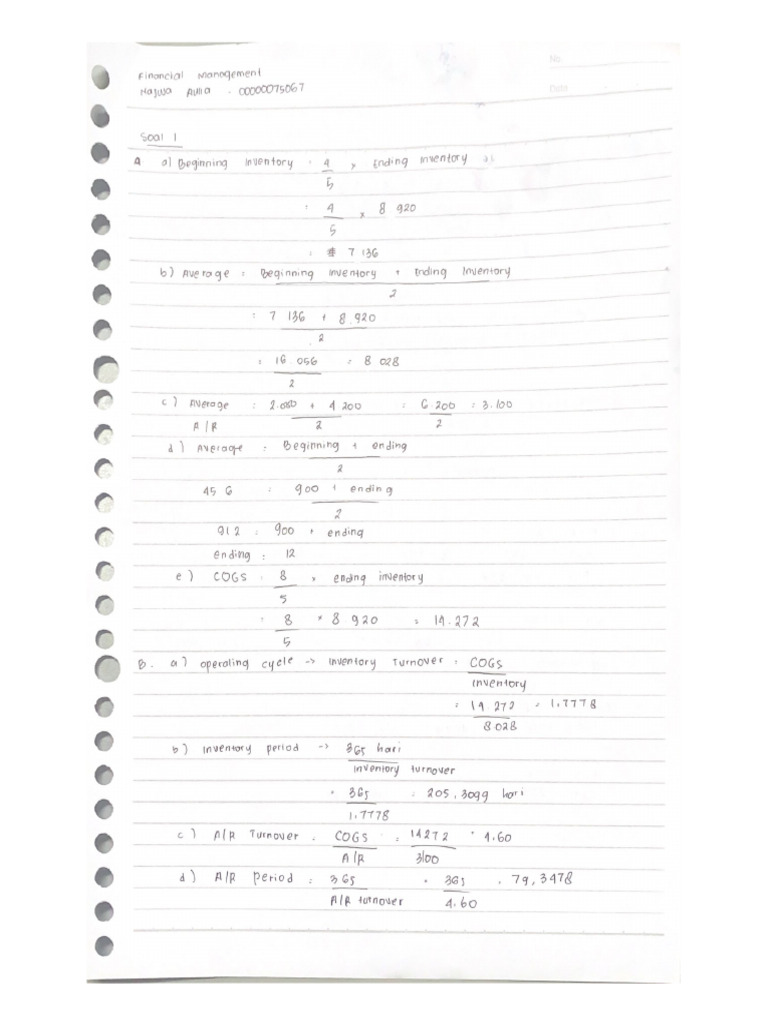 No
Date
Financial Management
Najwa Aulia . 00000075067
Soal 1
A a) Beginning Inventory : 4/5 x Ending Inventory
: 4/5 x 8 920
: 7 136
b) Average : Beginning Inventory + Ending Inventory
2
: 7 136 + 8.920
2
: 16.056 : 8 028
2
c) Average : 2.000 + 4 200 : 6.200 : 3.100
A/R 2 2
d) Average : Beginning + ending
2
456 : 900 + ending
2
912 : 900 + ending
ending : 12
e) COGS : 8 x ending inventory
5
: 8 x 8 920 = 14.272
5
B. a) operating cycle -> Inventory Turnover : COGS
inventory
: 14 272 = 1,7778
8.028
b) Inventory period -> 365 hari
inventory turnover
: 365 : 205,3099 hari
1,7778
c) A/R Turnover : COGS : 14272 : 4.60
A/R 3100
d) A/R period : 365 : 365 : 79,3478
A/R turnover 4.60